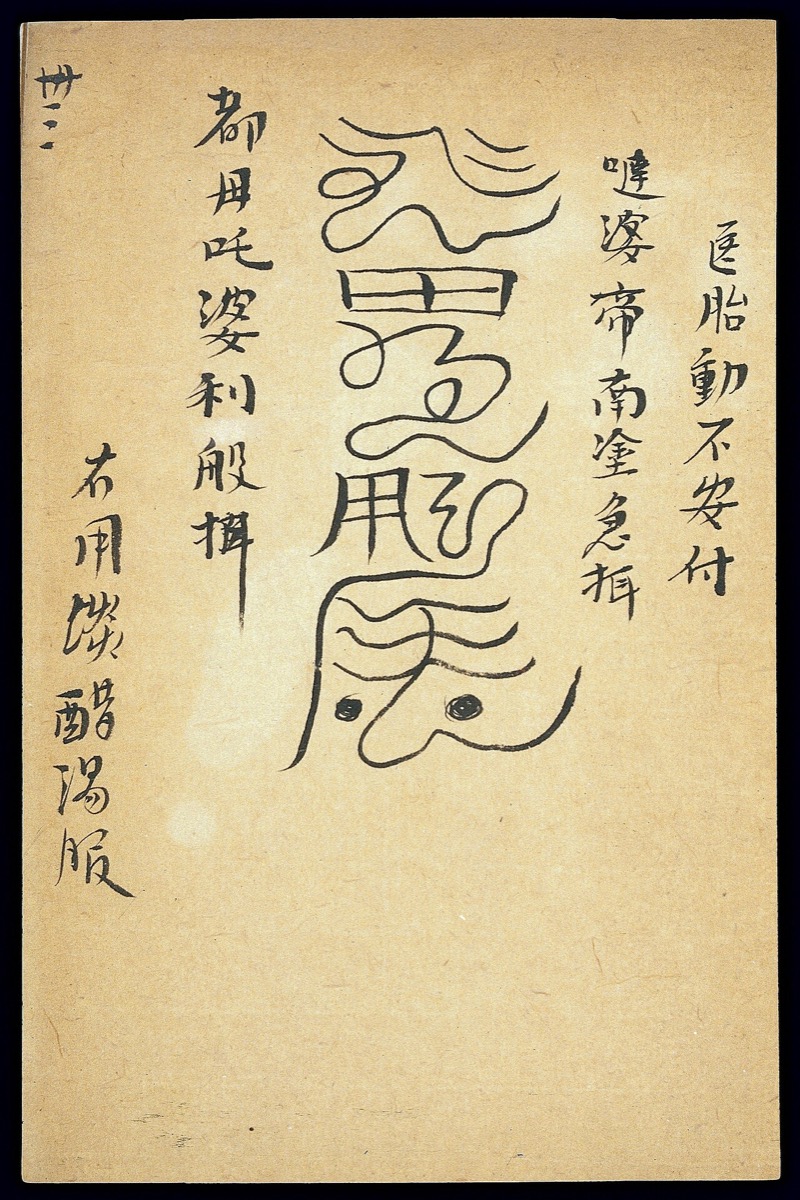 医胎動不安付
嗹婆帝南塗急揖
都毋吒婆利般揖
右用燃醋湯服
卅二